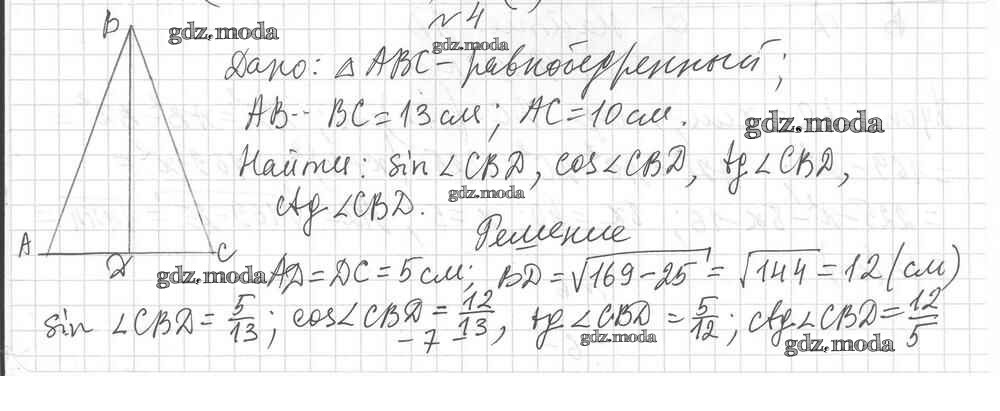 №4
B
gdz.moda
gdz.moda
Дано: △ ABC - равнобедренный;
AB = BC = 13 см; AC = 10 см.
gdz.moda
Найти: sin ∠CBD, cos ∠CBD, tg ∠CBD,
gdz.moda
ctg ∠CBD.
Решение
A
D
C
gdz.moda
AD = DC = 5 см; BD = √169-25 = √144 = 12 (см)
sin ∠CBD = 5/13; cos ∠CBD = 12/13, tg ∠CBD = 5/12; ctg ∠CBD = 12/5
-7-
gdz.moda
gdz.moda